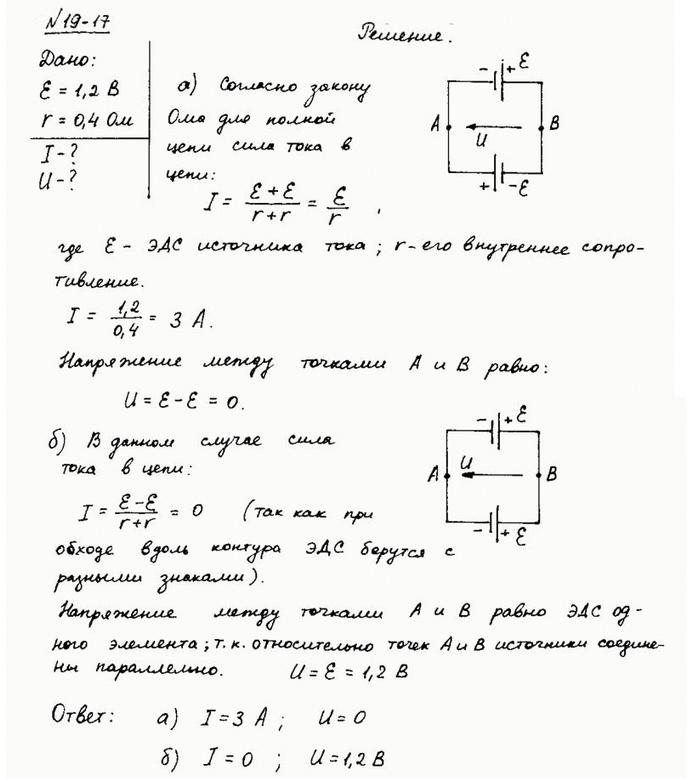 №19-17
Решение.
Дано:
ε = 1,2 В
r = 0,4 Ом
I - ?
U - ?
а) Согласно закону
Ома для полной
цепи сила тока в
цепи:
I = (ε + ε)/(r + r) = ε/r ,
- + ε
A U B
+ - ε
где ε - ЭДС источника тока; r - его внутреннее сопро-
тивление.
I = 1,2/0,4 = 3 А.
Напряжение между точками А и В равно:
U = ε - ε = 0.
б) В данном случае сила
тока в цепи:
I = (ε - ε)/(r + r) = 0 (так как при
обходе вдоль контура ЭДС берутся с
разными знаками).
- + ε
A U B
- + ε
Напряжение между точками А и В равно ЭДС од-
ного элемента; т.к. относительно точек А и В источники соедине-
ны параллельно. U = ε = 1,2 В
Ответ: а) I = 3 А ; U = 0
б) I = 0 ; U = 1,2 В